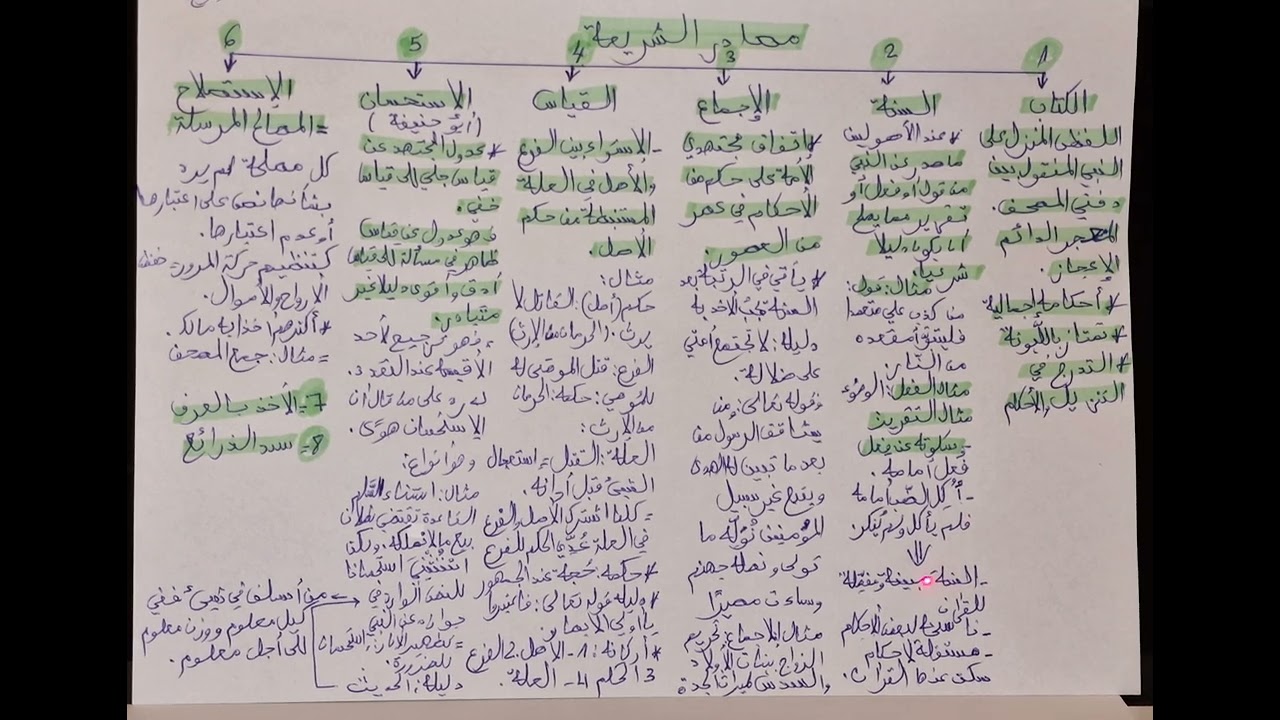 مصادر الشريعة
1
2
3
4
5
6
الكتاب
اللفظ المنزل على
النبي المنقول بين
دفتي المصحف.
المعجز الدائم
الإعجاز.
* أحكامه إجمالية
* تمتاز بالليونة
* التدرج في
التنزيل والأحكام
السنة
* عند الأصوليين
ما صدر عن النبي
من قول أو فعل أو
تقرير مما يصلح
أن يكون دليلا
شرعيا.
مثال: قول:
من كذب علي متعمدا
فليتبوأ مقعده
من النار
مثال الفعل: الوضوء
مثال التقرير
- سكوته عن فعل
فعل أمامه.
- أكل الضب أمامه
فلم يأكل ولم ينكر.
- السنة مبينة ومفصلة
للقرآن
- ناسخة لبعض الأحكام
- مستقلة لأحكام
سكت عنها القرآن.
الإجماع
* اتفاق مجتهدي
الأمة على حكم من
الأحكام في عصر
من العصور.
* يأتي في الرتبة بعد
السنة يجب الأخذ به
دليله: لا تجتمع أمتي
على ضلالة.
وقوله تعالى: ومن
يشاقق الرسول من
بعد ما تبين له الهدى
ويتبع غير سبيل
المؤمنين نوله ما
تولى ونصله جهنم
وساءت مصيرًا
مثال الإجماع: تحريم
الزواج ببنات الأولاد
والسدس لميراث الجدة
القياس
- الاستواء بين الفرع
والأصل في العلة
المستنبطة من حكم
الأصل.
مثال:
حكم (أصل): القاتل لا
يرث. (الحرمان من الإرث)
الفرع: قتل الموصى له
للموصي: حكمه: الحرمان
من الإرث:
العلة: القتل = استعجال
الشيء قبل أوانه.
= كلما اشترك الأصل والفرع
في العلة عُدّي الحكم للفرع
* حكمه: حجة عند الجمهور
* دليله قوله تعالى: فاعتبروا
يا أولي الأبصار
* أركانه: 1- الأصل 2- الفرع
3 الحكم 4- العلة.
الاستحسان
(أبو حنيفة)
* عدول المجتهد عن
قياس جلي إلى قياس
خفي.
فهو عدول عن قياس
ظاهر في مسألة إلى قياس
أدق وأقوى دليلا غير
متبادر.
فهو ترجيح لأحد
الأقيسة عند التعدد.
له رد على من قال أن
الاستحسان هوًى.
وهو أنواع:
مثال: استثناء السَّلم
القاعدة تقتضي بطلان
بيع ما لا تملكه. ولكن
استُثني استحسانا
للنص الوارد في
جوازه عن النبي
= تطهير الآبار: استحسان
للضرورة.
دليله: الحديث
من أسلف في شيء ففي
كيل معلوم ووزن معلوم
إلى أجل معلوم.
الإستصلاح
= المصالح المرسلة
كل مصلحة لم يرد
بشأنها نص على اعتبارها
أو عدم اعتبارها.
كتنظيم حركة المرور = حفظ
الأرواح والأموال.
* أكثرهم أخذا به مالك.
= مثال: جمع المصحف
7- الأخذ بالعرف
8- سد الذرائع